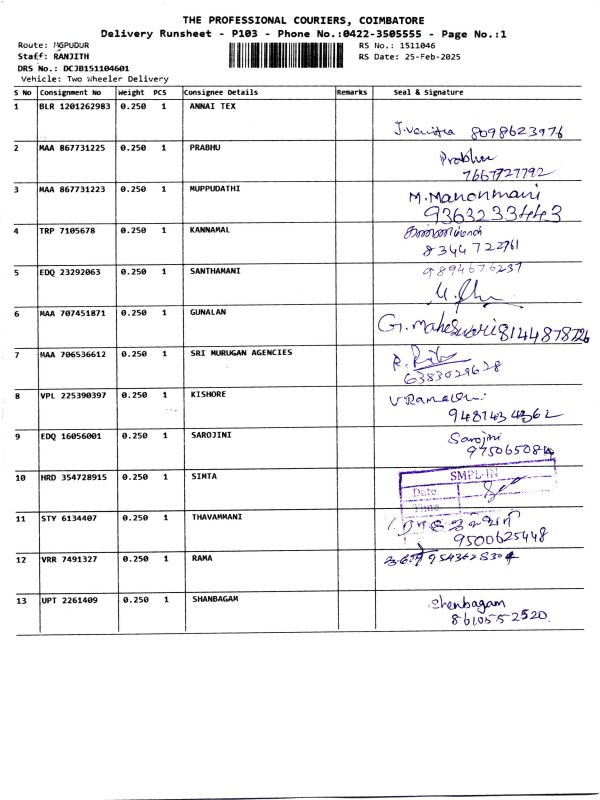 THE PROFESSIONAL COURIERS, COIMBATORE
Delivery Runsheet - P103 - Phone No.:0422-3505555 - Page No.:1
Route: MGPUDUR
RS No.: 1511046
Staff: RANJITH
RS Date: 25-Feb-2025
DRS No.: DCJB151104601
Vehicle: Two Wheeler Delivery
S No Consignment No Weight PCS Consignee Details Remarks Seal & Signature
1 BLR 1201262983 0.250 1 ANNAI TEX
8098623976
2 MAA 867731225 0.250 1 PRABHU
Prabhu
7667727792
3 MAA 867731223 0.250 1 MUPPUDATHI
M.Manonmani
9363233443
4 TRP 7105678 0.250 1 KANNAMAL
8344722761
5 EDQ 23292063 0.250 1 SANTHAMANI
9894676237
6 MAA 707451871 0.250 1 GUNALAN
G. Maheswari 8144878726
7 MAA 706536612 0.250 1 SRI MURUGAN AGENCIES
6383029628
8 VPL 225390397 0.250 1 KISHORE
9487434362
9 EDQ 16056001 0.250 1 SAROJINI
Sarojini
10 HRD 354728915 0.250 1 SIMTA
SMPL-IN
Date
Time
11 STY 6134407 0.250 1 THAVAMMANI
9500625448
12 VRR 7491327 0.250 1 RAMA
9543628304
13 UPT 2261409 0.250 1 SHANBAGAM
Shenbagam
8610552520